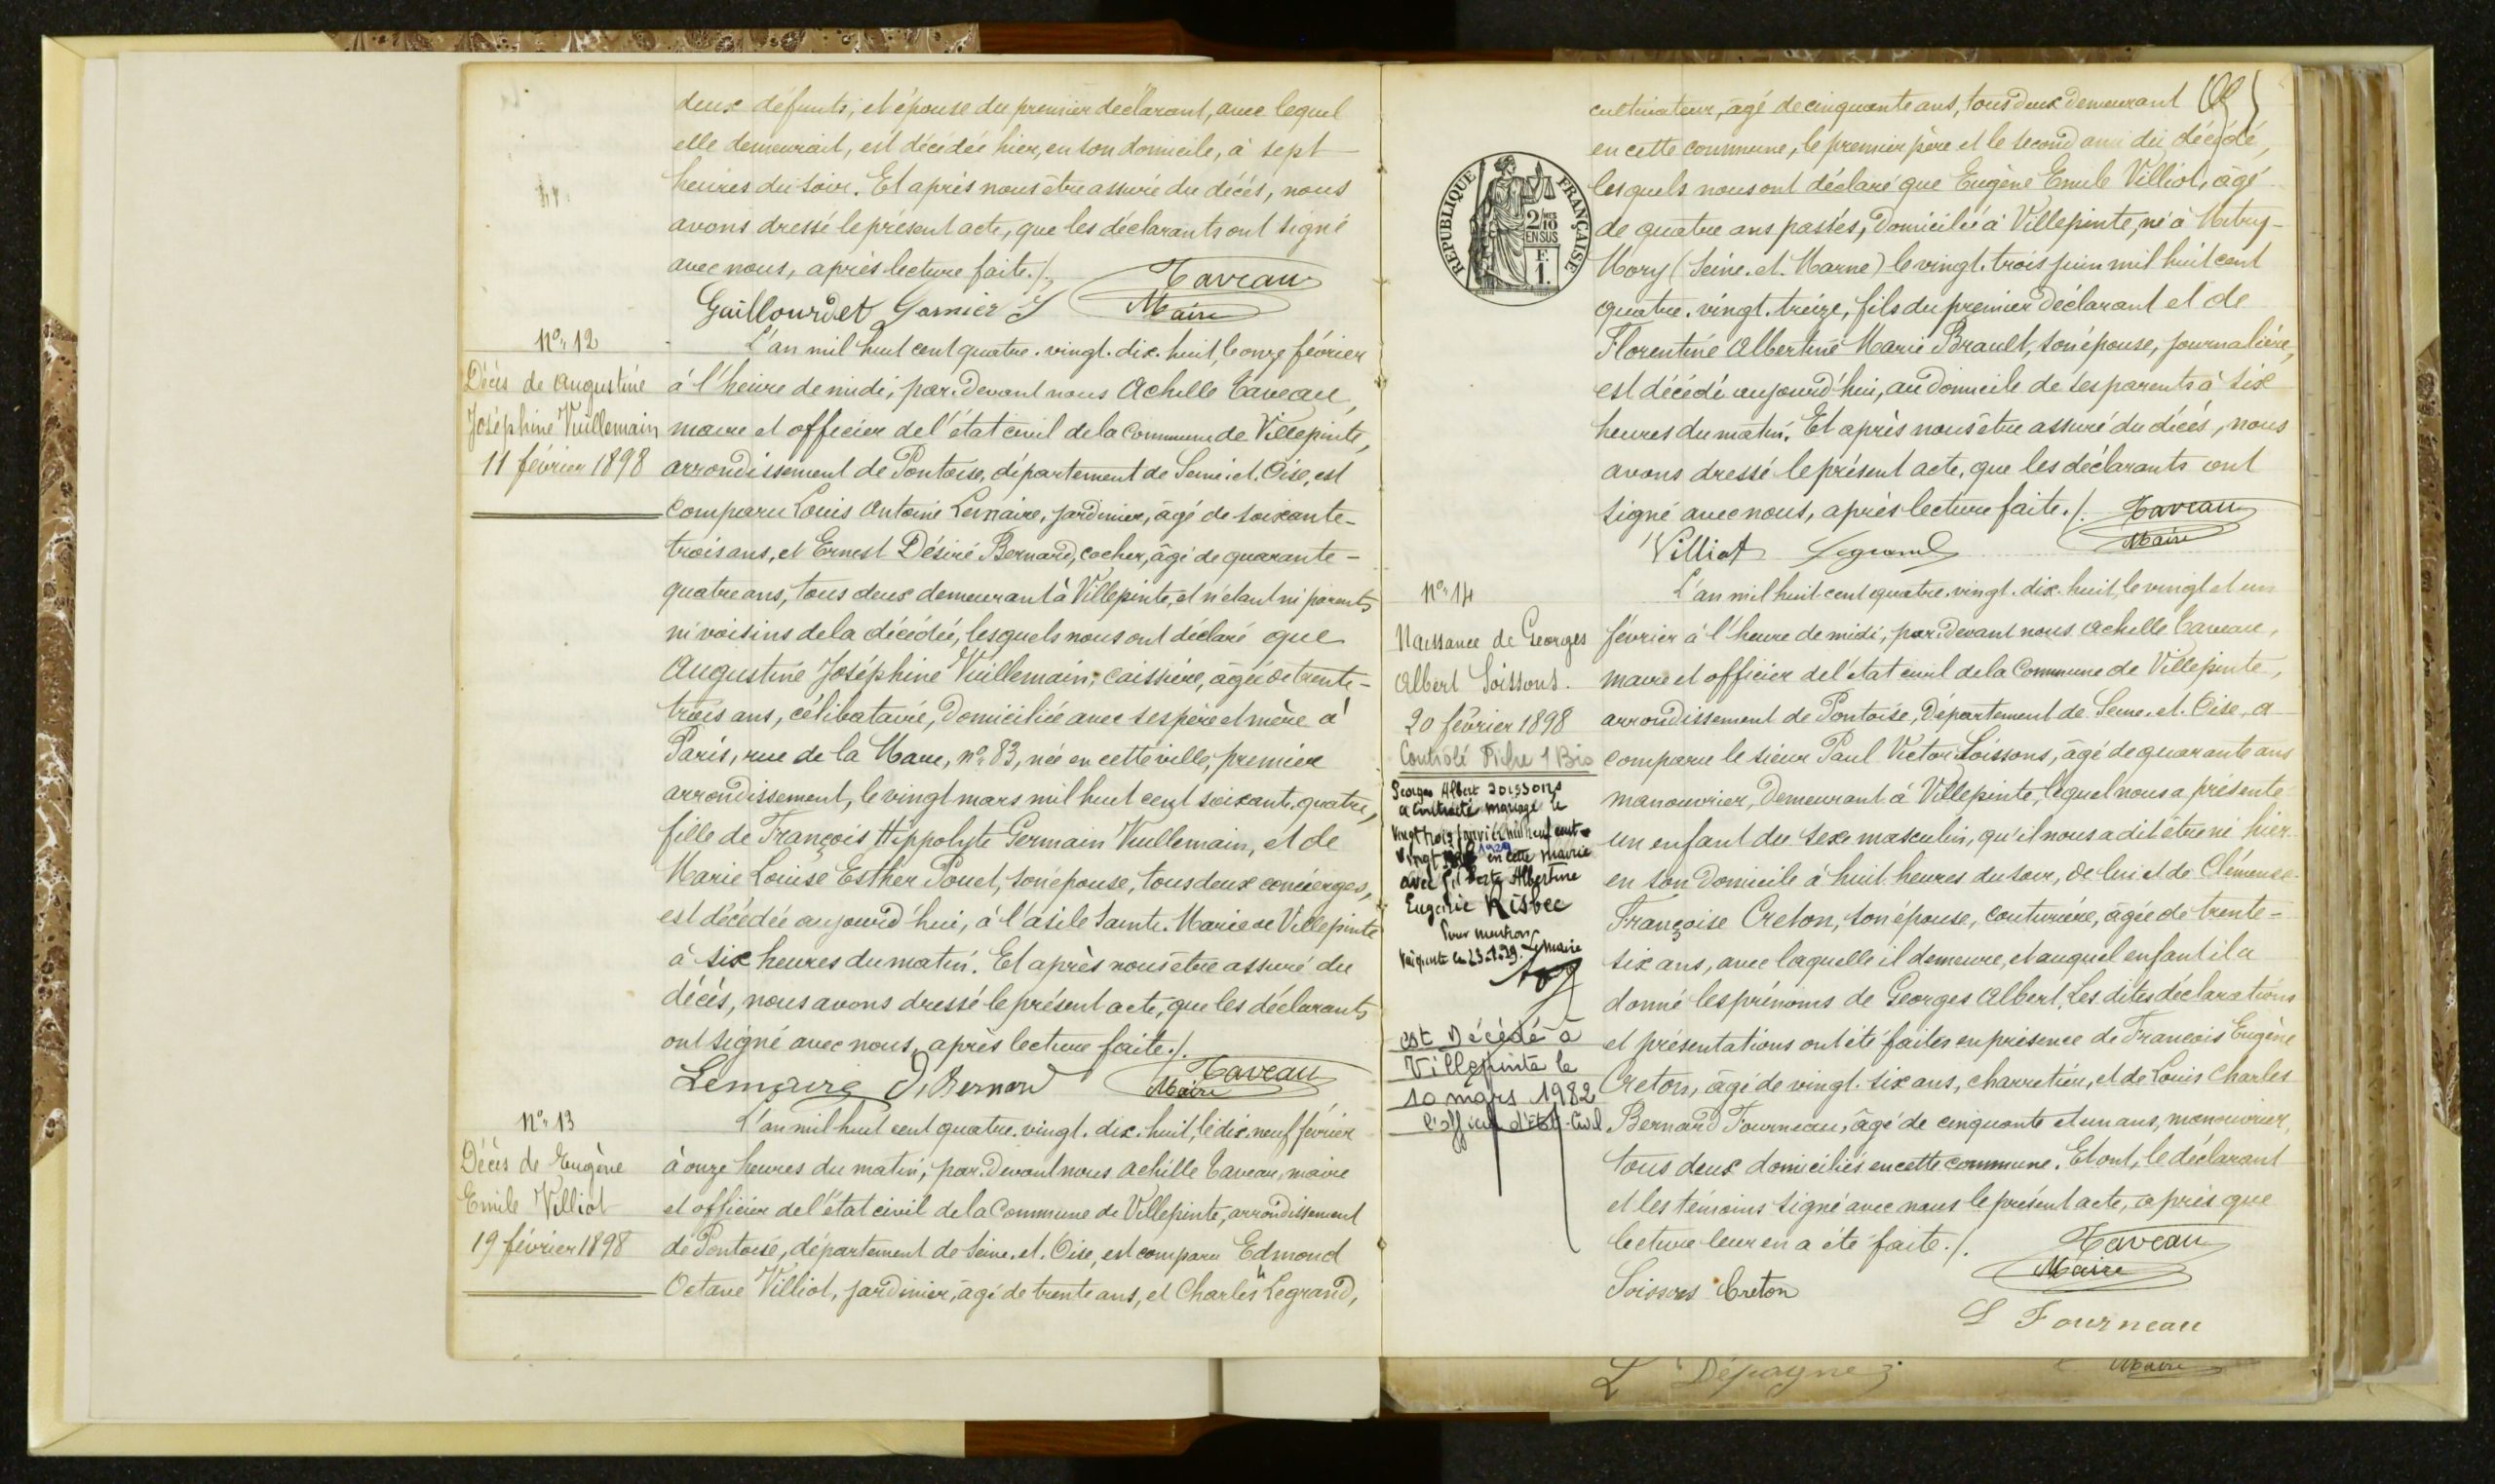 deux défunts, et épouse du premier déclarant, avec lequel
elle demeurait, est décédée hier, en son domicile, à sept
heures du soir. Et après nous être assuré du décès, nous
avons dressé le présent acte, que les déclarants ont signé
avec nous, après lecture faite./.
Taveau
Maire
Guillourdet Garnier
N° 12
Décès de Augustine
Joséphine Vuillemain
11 février 1898
L'an mil huit cent quatre-vingt-dix-huit, le onze février
à l'heure de midi, par-devant nous Achille Taveau,
maire et officier de l'état civil de la Commune de Villepinte,
arrondissement de Pontoise, département de Seine-et-Oise, est
comparu Louis Antoine Lemaire, jardinier, âgé de soixante-
trois ans, et Ernest Désiré Bernard, cocher, âgé de quarante-
quatre ans, tous deux demeurant à Villepinte, et n'étant ni parents
ni voisins de la décédée, lesquels nous ont déclaré que
Augustine Joséphine Vuillemain, caissière, âgée de trente-
trois ans, célibataire, domiciliée avec ses père et mère à
Paris, rue de la Mare, n° 83, née en cette ville, premier
arrondissement, le vingt mars mil huit cent soixante-quatre,
fille de François Hippolyte Germain Vuillemain, et de
Marie Louise Esther Pouet, son épouse, tous deux concierges,
est décédée aujourd'hui, à l'asile Sainte-Marie de Villepinte
à six heures du matin. Et après nous être assuré du
décès, nous avons dressé le présent acte, que les déclarants
ont signé avec nous, après lecture faite./.
Lemaire D Bernard
Taveau
Maire
N° 13
Décès de Eugène
Emile Villiot
19 février 1898
L'an mil huit cent quatre-vingt-dix-huit, le dix-neuf février
à onze heures du matin, par-devant nous Achille Taveau, maire
et officier de l'état civil de la Commune de Villepinte, arrondissement
de Pontoise, département de Seine-et-Oise, est comparu Edmond
Octave Villiot, jardinier, âgé de trente ans, et Charles Legrand,
cultivateur, âgé de cinquante ans, tous deux demeurant
en cette commune, le premier père et le second ami du décédé,
lesquels nous ont déclaré que Eugène Emile Villiot, âgé
de quatre ans passés, domicilié à Villepinte, né à Mitry-
Mory (Seine-et-Marne) le vingt-trois juin mil huit cent
quatre-vingt-treize, fils du premier déclarant et de
Florentine Albertine Marie Brault, son épouse, journalière,
est décédé aujourd'hui, au domicile de ses parents à six
heures du matin. Et après nous être assuré du décès, nous
avons dressé le présent acte, que les déclarants ont
signé avec nous, après lecture faite./.
Taveau
Maire
Villiot Legrand
RÉPUBLIQUE FRANÇAISE
2/10 MES
EN SUS
F.
1.
N° 14
Naissance de Georges
Albert Soissons.
20 février 1898
Contrôlé Fiche 1 Bis
Georges Albert Soissons
a contracté mariage le
vingt trois janvier mil neuf cent
vingt 1929 en cette mairie
avec Alberte Albertine
Eugénie Risbec
Pour mention
Villepinte le 23-1-29. Le maire
est Décédé à
Villepinte le
10 mars 1982
l'officier d'état-Civil
L'an mil huit cent quatre-vingt-dix-huit, le vingt et un
février à l'heure de midi, par-devant nous Achille Taveau,
maire et officier de l'état civil de la Commune de Villepinte,
arrondissement de Pontoise, département de Seine-et-Oise, a
comparu le sieur Paul Victor Soissons, âgé de quarante ans
manouvrier, demeurant à Villepinte, lequel nous a présenté
un enfant du sexe masculin, qu'il nous a dit être né hier
en son domicile à huit heures du soir, de lui et de Clémence
Françoise Creton, son épouse, couturière, âgée de trente-
six ans, avec laquelle il demeure, et auquel enfant il a
donné les prénoms de Georges Albert. Les dites déclarations
et présentations ont été faites en présence de François Eugène
Creton, âgé de vingt-six ans, charretier, et de Louis Charles
Bernard Fourneau, âgé de cinquante et un ans, manouvrier,
tous deux domiciliés en cette commune. Et ont, le déclarant
et les témoins signé avec nous le présent acte, après que
lecture leur en a été faite./.
Taveau
Maire
Soissons Creton
L Fourneau
L Dépagne
Maire